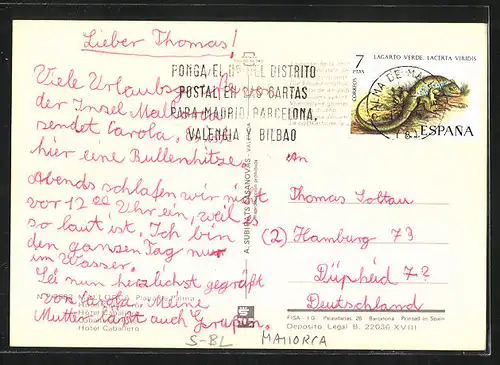 Lieber Thomas!
Viele Urlaubsgrüße von
der Insel Mallorca
sendet Carola. Es ist
hier eine Bullenhitze.
Abends schlafen wir nicht
vor 12 00 Uhr ein, weil es
so laut ist. Ich bin
den ganzen Tag nur
im Wasser.
Sei nun herzlichst gegrüßt
von Carola. Meine
Mutter läßt auch Grüßen.
Hotel Caballero
S-BL MALLORCA
PONGA EL DEL DISTRITO
POSTAL EN SUS CARTAS
PARA MADRID, BARCELONA,
VALENCIA Y BILBAO
7
PTAS
CORREOS
LAGARTO VERDE. LACERTA VIRIDIS
ESPAÑA
PALMA DE
A. SUBIRATS CASANOVAS - VALENCIA
An
Thomas Soltau
(2) Hamburg 73
Düpheid 7?
Deutschland
FISA - I.G. Palaudarias, 26 Barcelona Printed in Spain
Depósito Legal B. 22036 XVIII